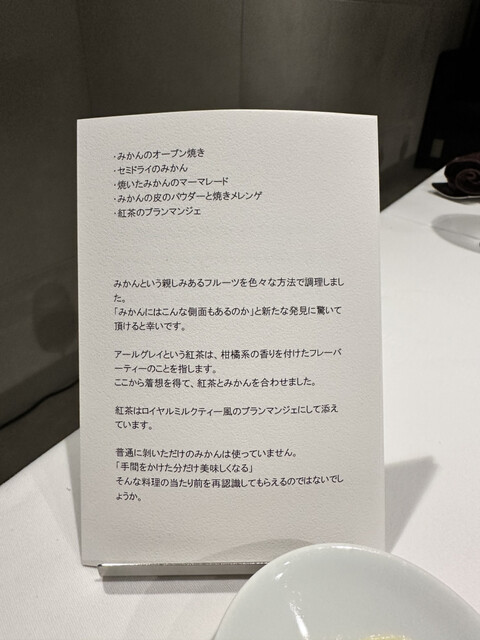 ・みかんのオーブン焼き
・セミドライのみかん
・焼いたみかんのマーマレード
・みかんの皮のパウダーと焼きメレンゲ
・紅茶のブランマンジェ
みかんという親しみあるフルーツを色々な方法で調理しまし
た。
「みかんにはこんな側面もあるのか」と新たな発見に驚いて
頂けると幸いです。
アールグレイという紅茶は、柑橘系の香りを付けたフレーバ
ーティーのことを指します。
ここから着想を得て、紅茶とみかんを合わせました。
紅茶はロイヤルミルクティー風のブランマンジェにして添え
ています。
普通に剥いただけのみかんは使っていません。
「手間をかけた分だけ美味しくなる」
そんな料理の当たり前を再認識してもらえるのではないでし
ょうか。